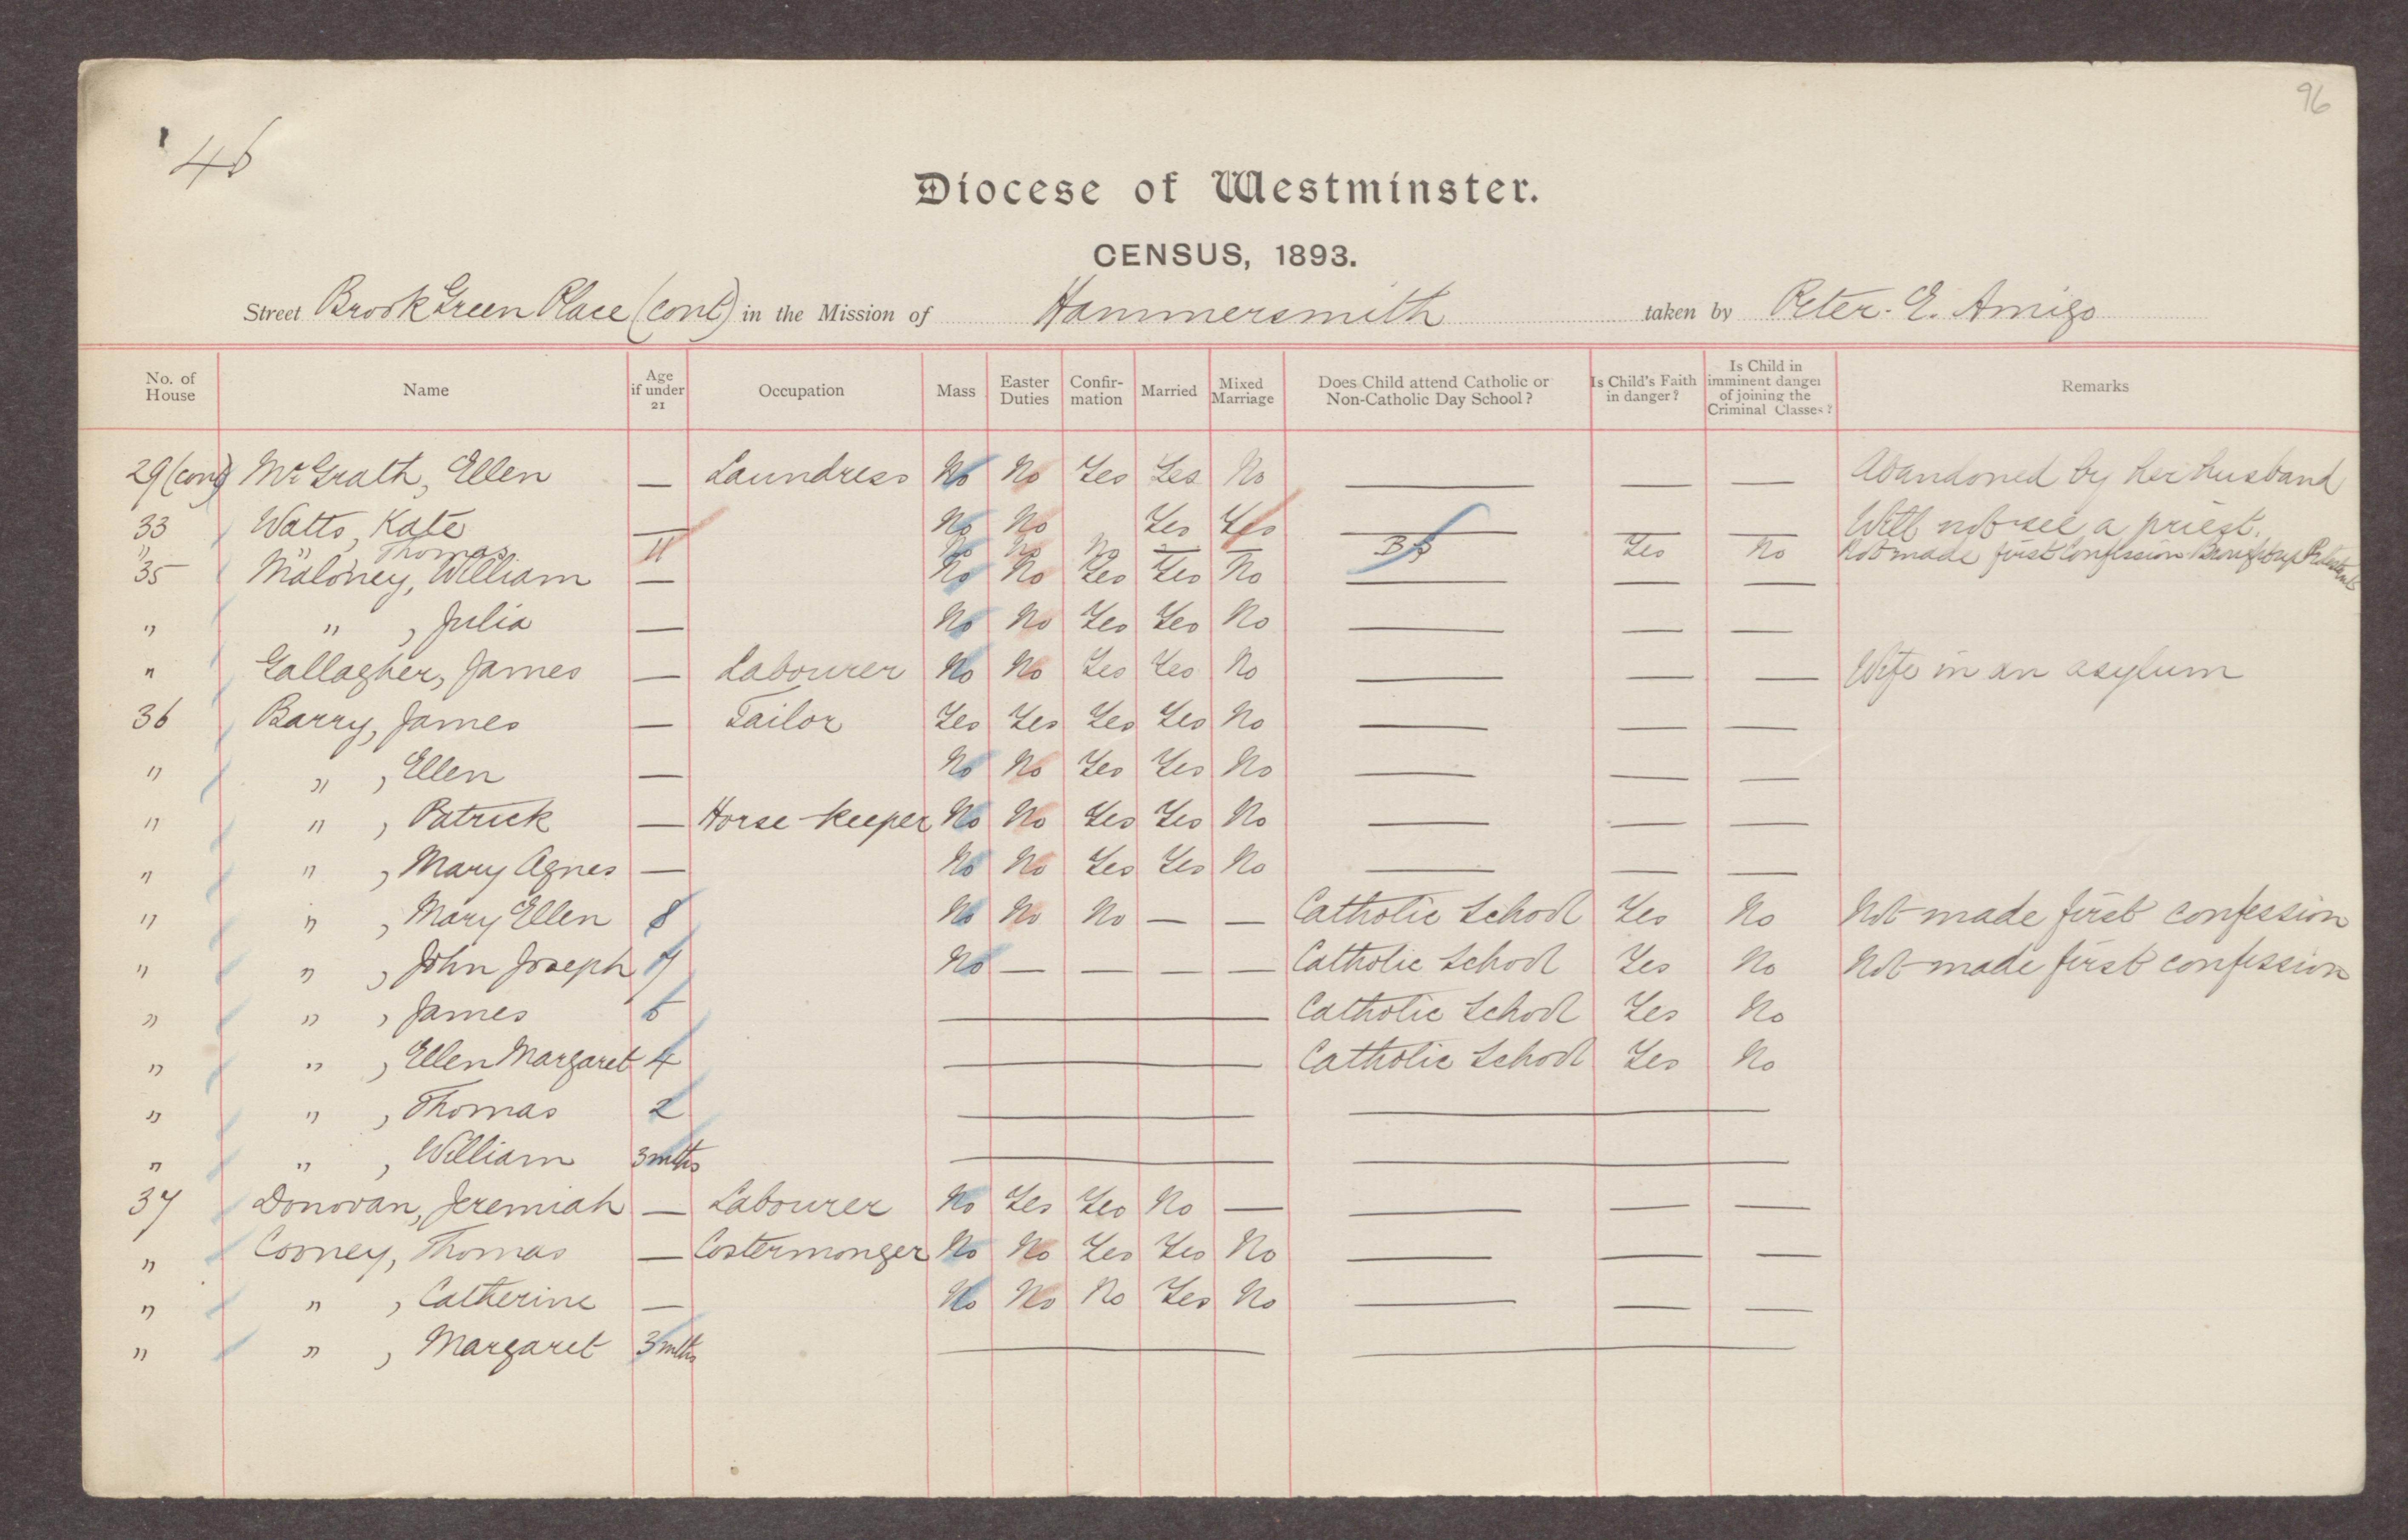 96
46
Diocese of Westminster.
CENSUS, 1893.
Street Brook Green Place (cont) in the Mission of Hammersmith taken by Peter. E. Amigo
No. of House Name Age if under 21 Occupation Mass Easter Duties Confir-mation Married Mixed Marriage Does Child attend Catholic or Non-Catholic Day School? Is Child's Faith in danger? Is Child in imminent danger of joining the Criminal Classes? Remarks
29 (cont) McGrath, Ellen — Laundress No No Yes Yes No — — — Abandoned by her husband
33 Watts, Kate — No No Yes Yes — — — Will not see a priest.
" " Thomas 11 No No No — — BS Yes No Not made first Confession Brought up Protestant
35 Maloney, William — No No Yes Yes No — — —
" " , Julia — No No Yes Yes No — — —
" Gallagher, James — Labourer No No Yes Yes No — — — Wife in an asylum
36 Barry, James — Tailor Yes Yes Yes Yes No — — —
" " , Ellen — No No Yes Yes No — — —
" " , Patrick — Horse-keeper No No Yes Yes No — — —
" " , Mary Agnes — No No Yes Yes No — — —
" " , Mary Ellen 8 No No No — — Catholic School Yes No Not made first confession
" " , John Joseph 7 No — — — — Catholic School Yes No Not made first confession
" " , James 5 — Catholic School Yes No
" " , Ellen Margaret 4 — Catholic School Yes No
" " , Thomas 2 — —
" " , William 3 mths — —
37 Donovan, Jeremiah — Labourer No Yes Yes No — — — —
" Cooney, Thomas — Costermonger No No Yes Yes No — — —
" " , Catherine — No No No Yes No — — —
" " , Margaret 3 mths — —